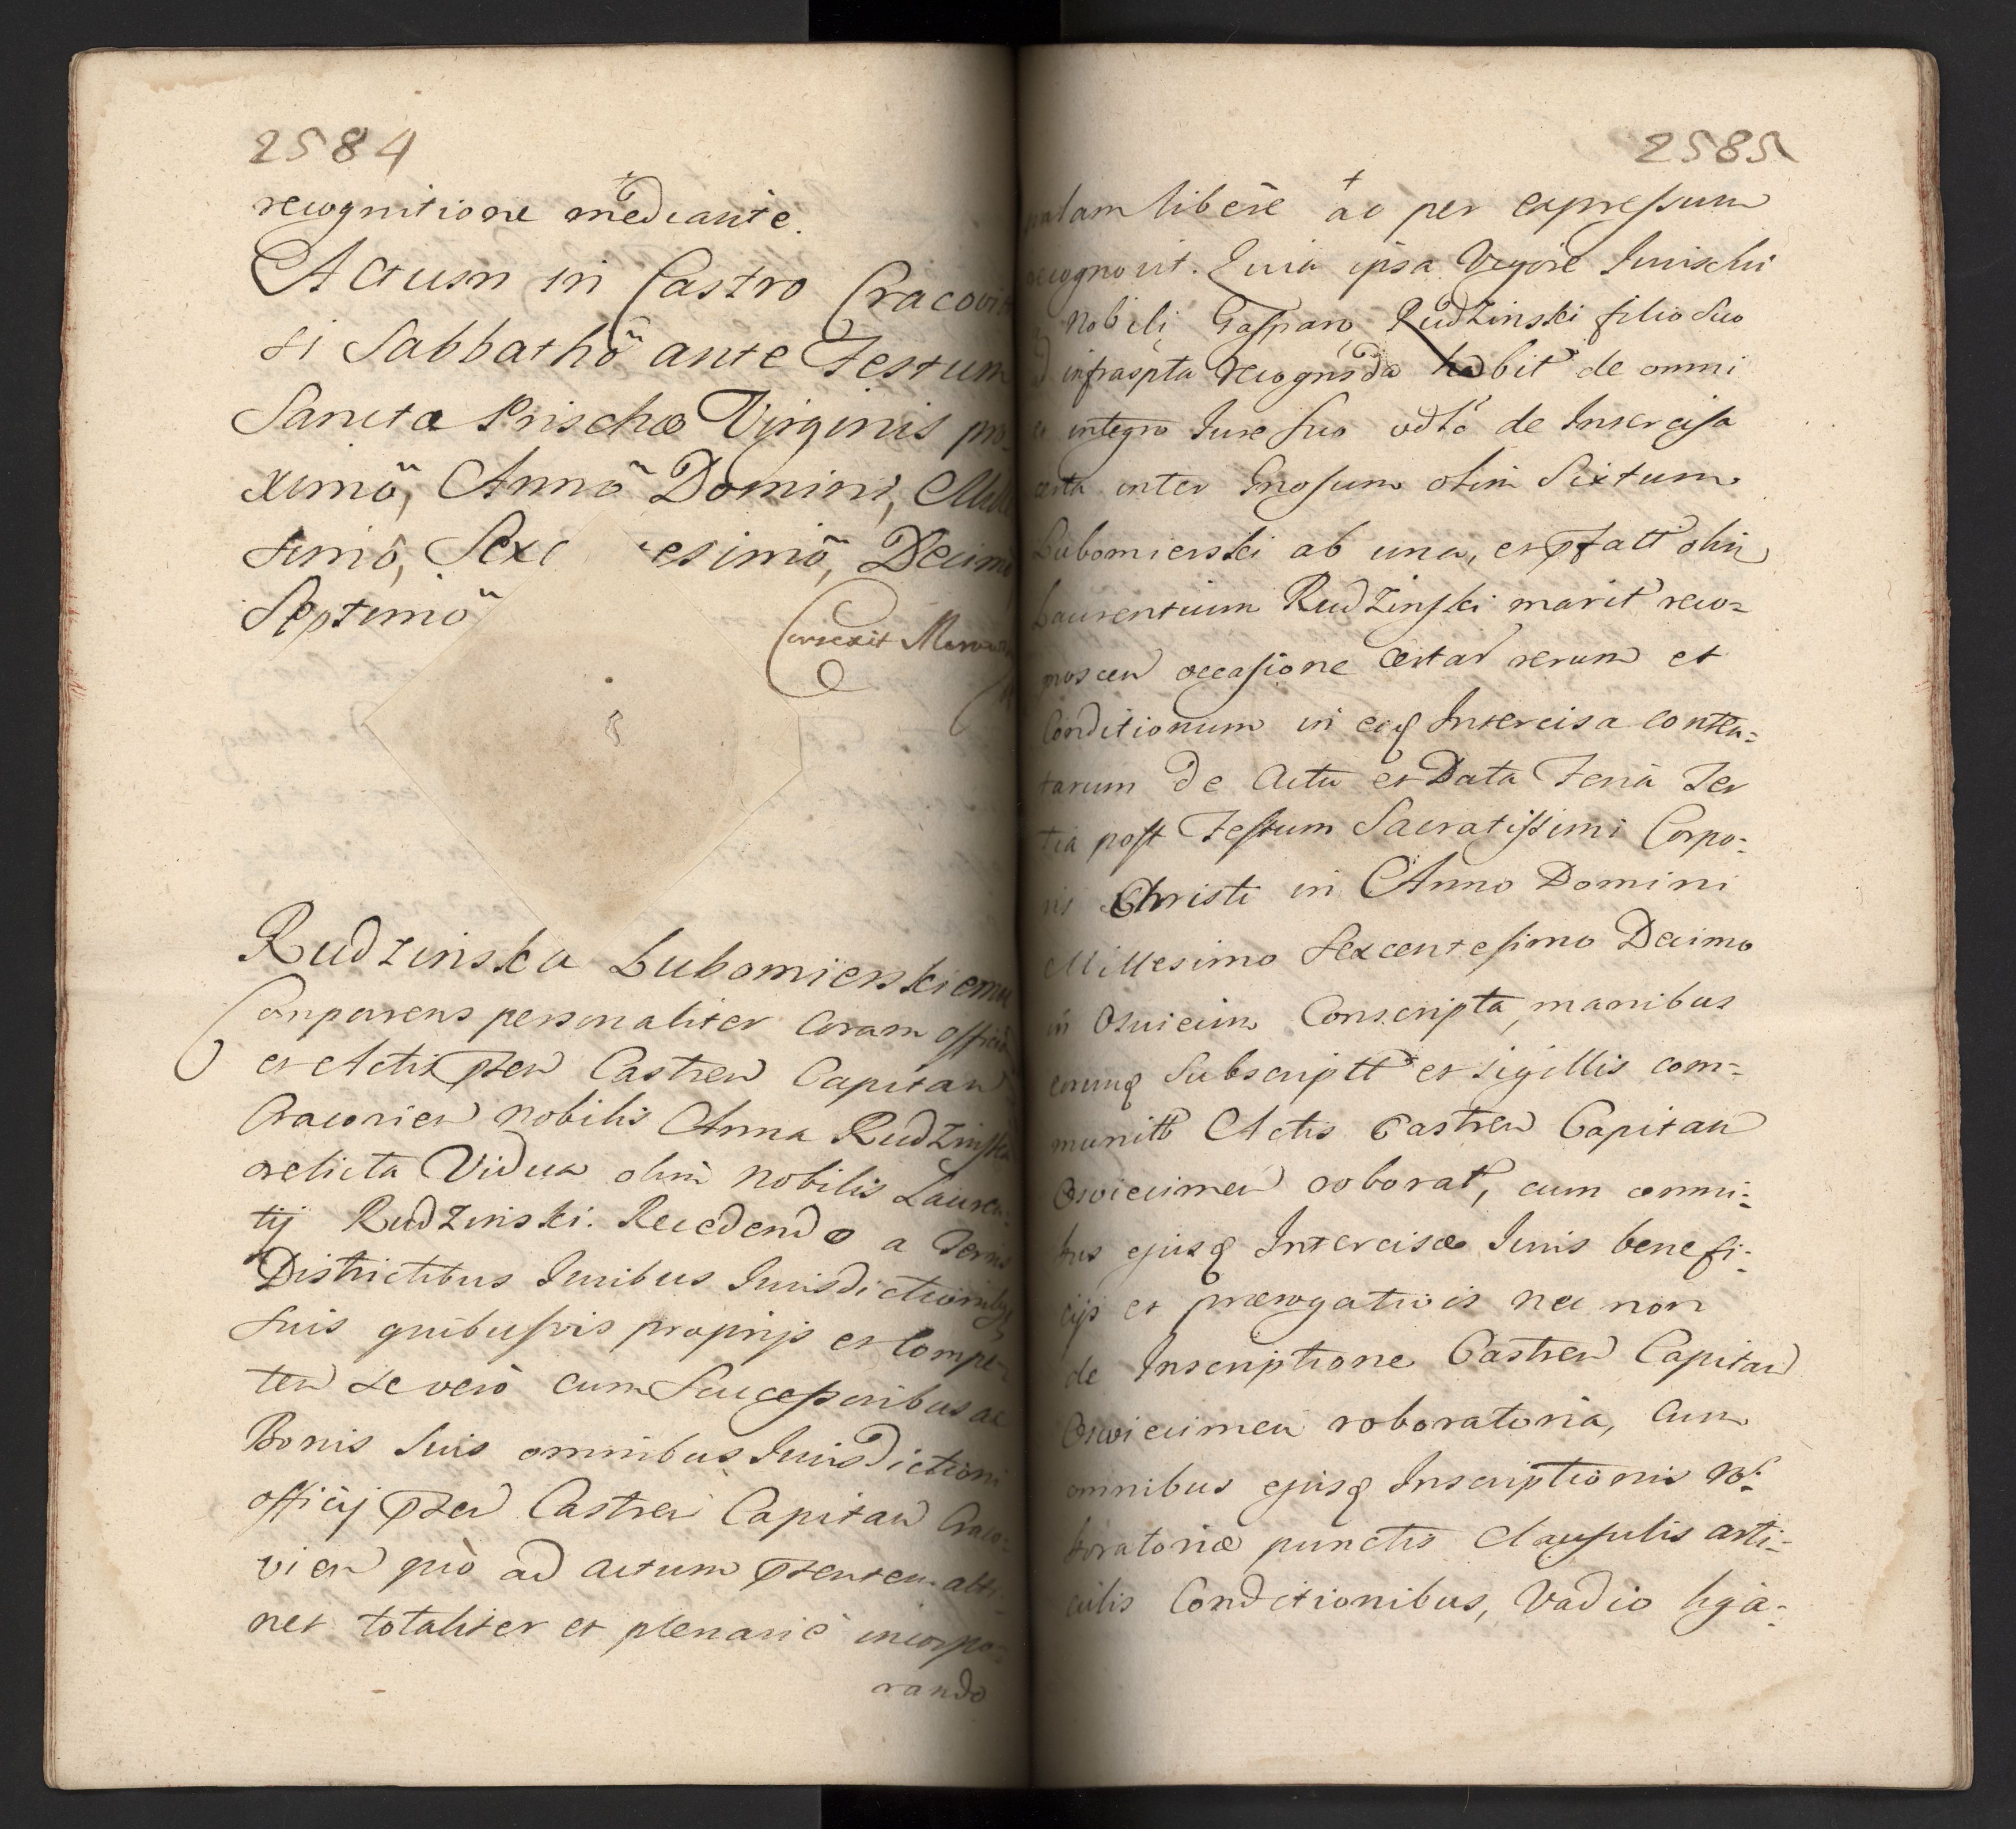 2584
recognitione mediante.
Actum in Castro Cracovi
si Sabbathõ ante Festum
Sanctæ Prischæ Virginis pro
ximõ, Annõ Domini, Mille
simõ, Sexc esimõ, Decimõ
Septimõ
Correxit
Rudzinska Lubomierskiemu
Comparens personaliter Coram officio
et Actis pten Castren Capitan
Cracovien nobilis Anna Rudzinska
relicta Vidua olim nobilis Lauren
tij Rudzinski. Recedendo a Terris
Districtibus Juribus Jurisdictionibq
suis quibusvis proprijs et Compe-
ten se verò cum Successoribus ac
Bonis suis omnibus Jurisdictioni
officij pten Castren Capitan Craco-
vien quò ad actum ptentem atti-
net totaliter et plenariè incorpo-
rando
2585
palam liberè ac per expressum
recognovit. Quia ipsa Vigore Jurischi
nobili Gaspari Rudzinski filio suo
ad infrasptа recognsda habit de omni
et integro Jure suo de Intercisa
certa inter Gnosum olim Sixtum
Lubomierski ab una, et ptatt olim
Laurentium Rudzinski marit reco=
noscen occasione certar rerum et
Conditionum in eaq Intercisa conten=
tarum de Actu et Data Feria Ter
tia post Festum Sacratissimi Corpo=
ris Christi in Anno Domini
Millesimo sexcentesimo Decimo
in Osviecim Conscripta, manibus
eorumq Subscriptt et sigillis com=
munitt Actis Castren Capitan
Osviecimen roborat, cum omni=
bus ejusq Intercisæ Juris benefi=
cijs et prærogativis nec non
de Inscriptione Castren Capitan
Osviecimen roboratoria, cum
omnibus ejusq Inscriptionis ro=
boratoriæ punctis Clausulis arti=
culis Conditionibus, Vadio liga=